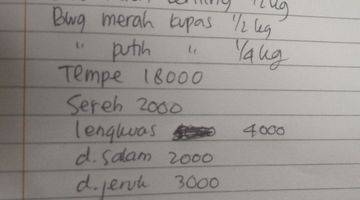 1/2 kg
Bwg merah kupas 1/2 kg
" putih " 1/4 kg
Tempe 18000
Sereh 2000
lengkuas 4000
d. salam 2000
d. jeruk 3000